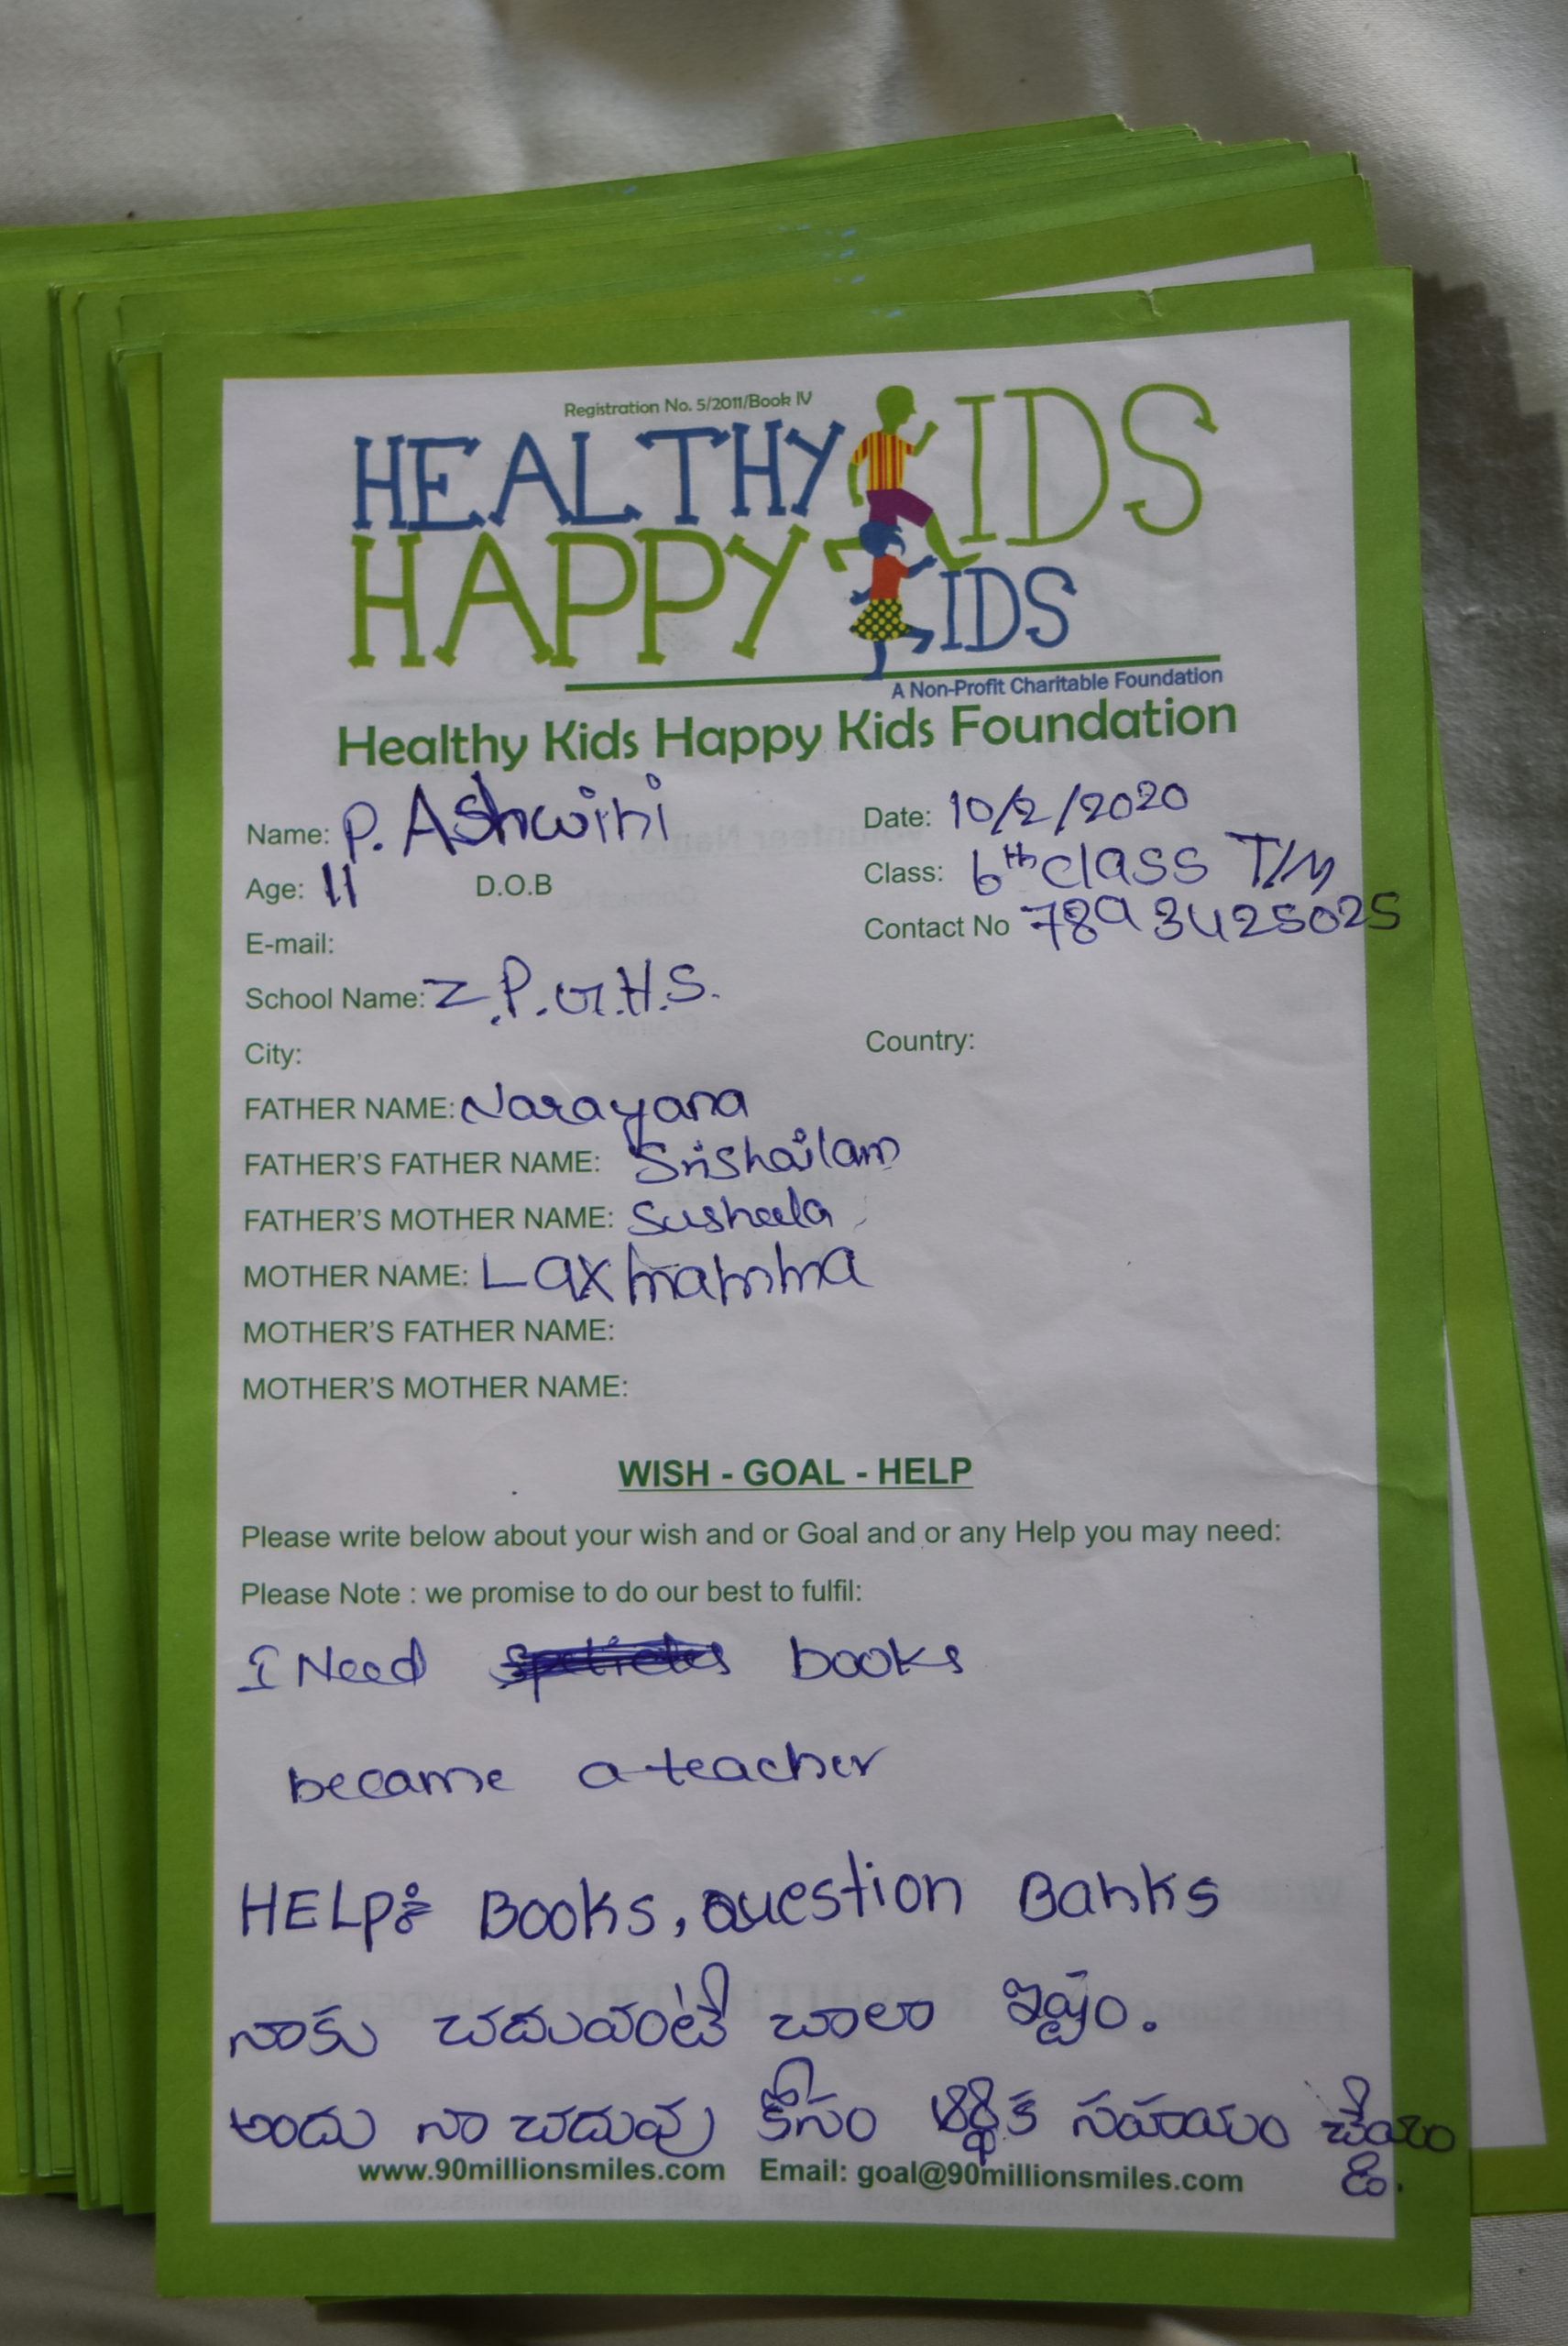 Registration No. 5/2011/Book IV
HEALTHY KIDS
HAPPY KIDS
A Non-Profit Charitable Foundation
Healthy Kids Happy Kids Foundation
Name: P. Ashwini Date: 10/2/2020
Age: 11 D.O.B Class: 6th class T/M
E-mail: Contact No 7893425025
School Name: Z.P.G.H.S.
City: Country:
FATHER NAME: Narayana
FATHER'S FATHER NAME: Srishailam
FATHER'S MOTHER NAME: Susheela
MOTHER NAME: Laxmamma
MOTHER'S FATHER NAME:
MOTHER'S MOTHER NAME:
WISH - GOAL - HELP
Please write below about your wish and or Goal and or any Help you may need:
Please Note : we promise to do our best to fulfil:
I Need books
became a teacher
HELP: Books, Question Banks
నాకు చదువంటే చాలా ఇష్టం.
అందు నా చదువు కోసం ఆర్థిక సహయం చేయం
డి.
www.90millionsmiles.com Email: goal@90millionsmiles.com